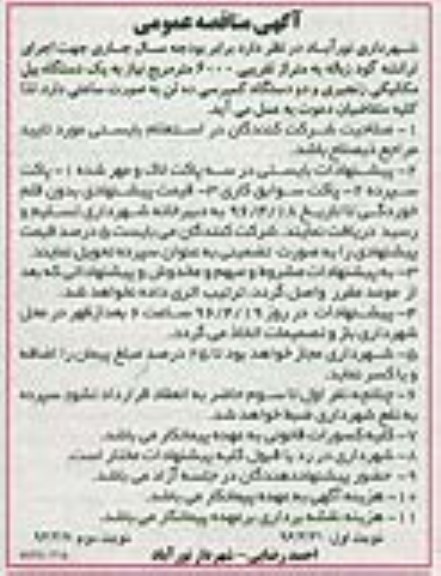 آگهی مناقصه عمومی
شهرداری نورآباد در نظر دارد برابر بودجه سال جاری جهت اجرای
ترانشه گود زباله به متراژ تقریبی ۶۰۰۰ مترمربع نیاز به یک دستگاه بیل
مکانیکی زنجیری و دو دستگاه کمپرسی ده تن به صورت ساعتی دارد لذا
کلیه متقاضیان دعوت به عمل می آید.
۱- صلاحیت شرکت کنندگان در استعلام بایستی مورد تایید
مراجع ذیصلاح باشد.
۲- پیشنهادات بایستی در سه پاکت لاک و مهر شده ۱- پاکت
سپرده ۲- پاکت سوابق کاری ۳- قیمت پیشنهادی بدون قلم
خوردگی تا تاریخ ۹۶/۴/۱۸ به دبیرخانه شهرداری تسلیم و
رسید دریافت نمایند. شرکت کنندگان می بایست ۵ درصد قیمت
پیشنهادی را به صورت تضمینی به عنوان سپرده تحویل نمایند.
۳- به پیشنهادات مشروط و مبهم و مخدوش و پیشنهاداتی که بعد
از موعد مقرر واصل گردد، ترتیب اثری داده نخواهد شد.
۴- پیشنهادات در روز ۹۶/۴/۱۹ ساعت ۶ بعدازظهر در محل
شهرداری باز و تصمیمات اتخاذ می گردد.
۵- شهرداری مجاز خواهد بود تا ۲۵ درصد مبلغ پیمان را اضافه
و یا کسر نماید.
۶- چنانچه نفر اول تا سوم حاضر به انعقاد قرارداد نشود سپرده
به نفع شهرداری ضبط خواهد شد.
۷- کلیه کسورات قانونی به عهده پیمانکار می باشد.
۸- شهرداری در رد یا قبول کلیه پیشنهادات مختار است.
۹- حضور پیشنهاددهندگان در جلسه آزاد می باشد.
۱۰- هزینه آگهی به عهده پیمانکار می باشد.
۱۱- هزینه نقشه برداری بر عهده پیمانکار می باشد.
نوبت اول: نوبت دوم:
احمد رضایی - شهردار نورآباد